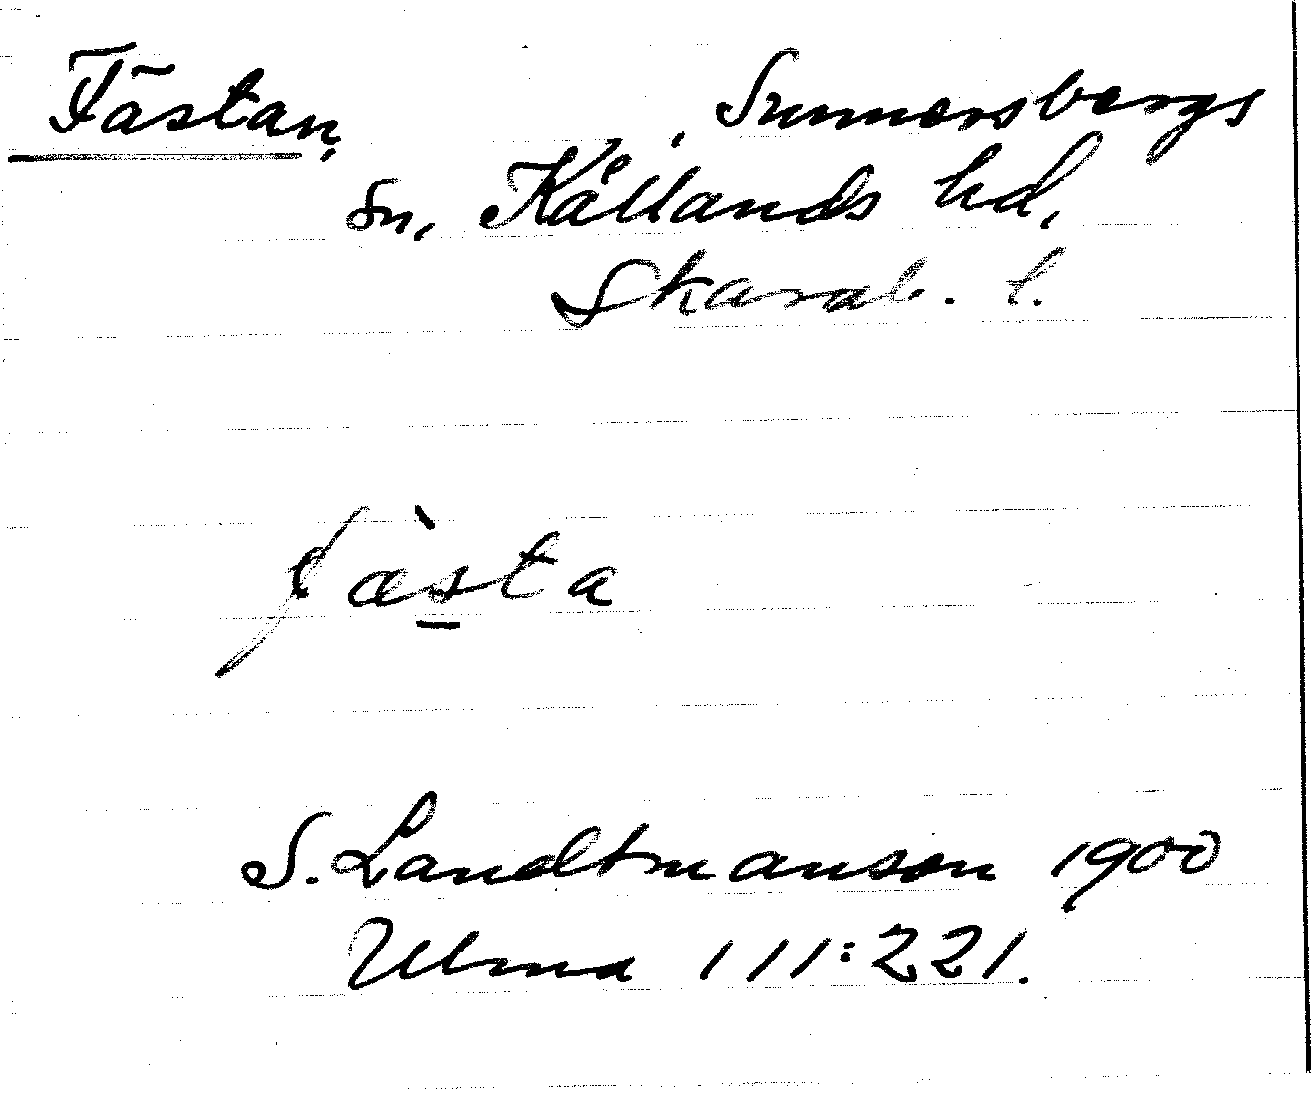 Fästan, Sunnersbergs
Sn, Kållands hd,
Skarab. l.
fæ̀sta
S. Landtmanson 1900
Ulma 111:221.